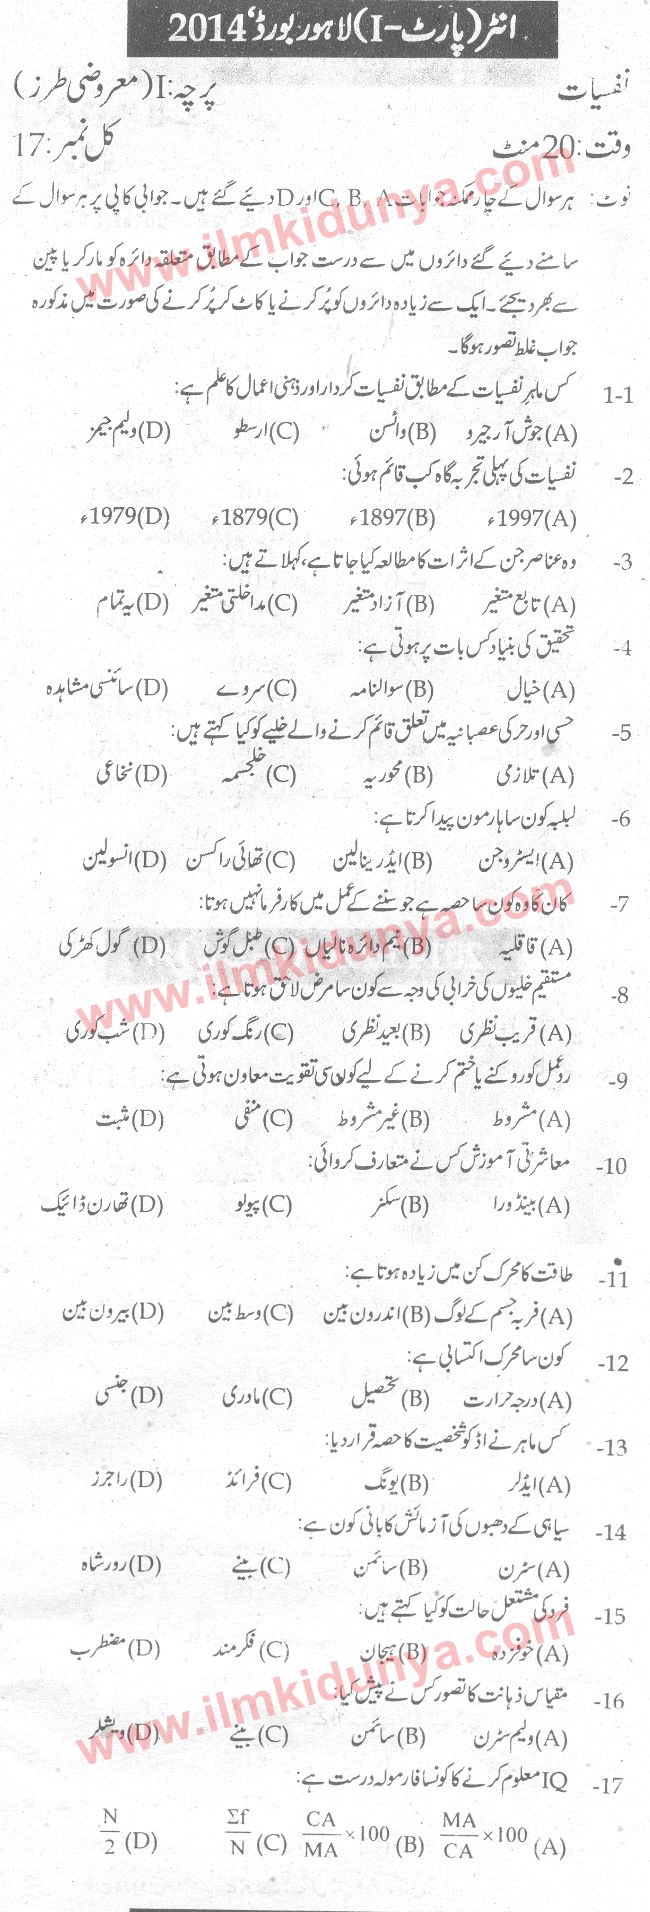 انٹر (پارٹ-I) لاہور بورڈ 2014ء
نفسیات پرچہ: I (معروضی طرز)
وقت: 20 منٹ کل نمبر: 17
نوٹ: ہر سوال کے چار ممکنہ جوابات A، B، C اور D دیئے گئے ہیں۔ جوابی کاپی پر ہر سوال کے
سامنے دیئے گئے دائروں میں سے درست جواب کے مطابق متعلقہ دائرہ کو مارکر یا پین
سے بھر دیجئے۔ ایک سے زیادہ دائروں کو پُر کرنے یا کاٹ کر پُر کرنے کی صورت میں مذکورہ
جواب غلط تصور ہوگا۔
1-1 کس ماہر نفسیات کے مطابق نفسیات کردار اور ذہنی اعمال کا علم ہے:
(A) جوش آر جیرو (B) واٹسن (C) ارسطو (D) ولیم جیمز
-2 نفسیات کی پہلی تجربہ گاہ کب قائم ہوئی:
(A) 1997ء (B) 1897ء (C) 1879ء (D) 1979ء
-3 وہ عناصر جن کے اثرات کا مطالعہ کیا جاتا ہے، کہلاتے ہیں:
(A) تابع متغیر (B) آزاد متغیر (C) مداخلتی متغیر (D) یہ تمام
-4 تحقیق کی بنیاد کس بات پر ہوتی ہے:
(A) خیال (B) سوالنامہ (C) سروے (D) سائنسی مشاہدہ
-5 حسی اور حرکی عصبانیہ میں تعلق قائم کرنے والے خلیے کو کیا کہتے ہیں:
(A) تلازمی (B) محوریہ (C) خلجسمہ (D) نخاعی
-6 لبلبہ کون سا ہارمون پیدا کرتا ہے:
(A) ایسٹروجن (B) ایڈرینالین (C) تھائی راکسن (D) انسولین
-7 کان کا وہ کون سا حصہ ہے جو سننے کے عمل میں کارفرما نہیں ہوتا:
(A) قاقلیہ (B) نیم دائرہ نالیاں (C) طبل گوش (D) گول کھڑکی
-8 مستقیم خلیوں کی خرابی کی وجہ سے کون سا مرض لاحق ہوتا ہے:
(A) قریب نظری (B) بعید نظری (C) رنگ کوری (D) شب کوری
-9 ردعمل کو روکنے یا ختم کرنے کے لیے کون سی تقویت معاون ہوتی ہے:
(A) مشروط (B) غیر مشروط (C) منفی (D) مثبت
-10 معاشرتی آموزش کس نے متعارف کروائی:
(A) بینڈورا (B) سکنر (C) پیولو (D) تھارن ڈائیک
-11 طاقت کا محرک کن میں زیادہ ہوتا ہے:
(A) فربہ جسم کے لوگ (B) اندرون بین (C) وسط بین (D) بیرون بین
-12 کون سا محرک اکتسابی ہے:
(A) درجہ حرارت (B) تحصیل (C) مادری (D) جنسی
-13 کس ماہر نے اڈ کو شخصیت کا حصہ قرار دیا:
(A) ایڈلر (B) یونگ (C) فرائڈ (D) راجرز
-14 سیاہی کے دھبوں کی آزمائش کا بانی کون ہے:
(A) سٹرن (B) سائمن (C) بینے (D) رورشاہ
-15 فرد کی مشتعل حالت کو کیا کہتے ہیں:
(A) خوفزدہ (B) ہیجان (C) فکرمند (D) مضطرب
-16 مقیاس ذہانت کا تصور کس نے پیش کیا:
(A) ولیم سٹرن (B) سائمن (C) بینے (D) ویشلر
-17 IQ معلوم کرنے کا کونسا فارمولہ درست ہے:
(A) MA/CA ×100 (B) CA/MA ×100 (C) Σf/N (D) N/2
www.ilmkidunya.com
www.ilmkidunya.com
www.ilmkidunya.com